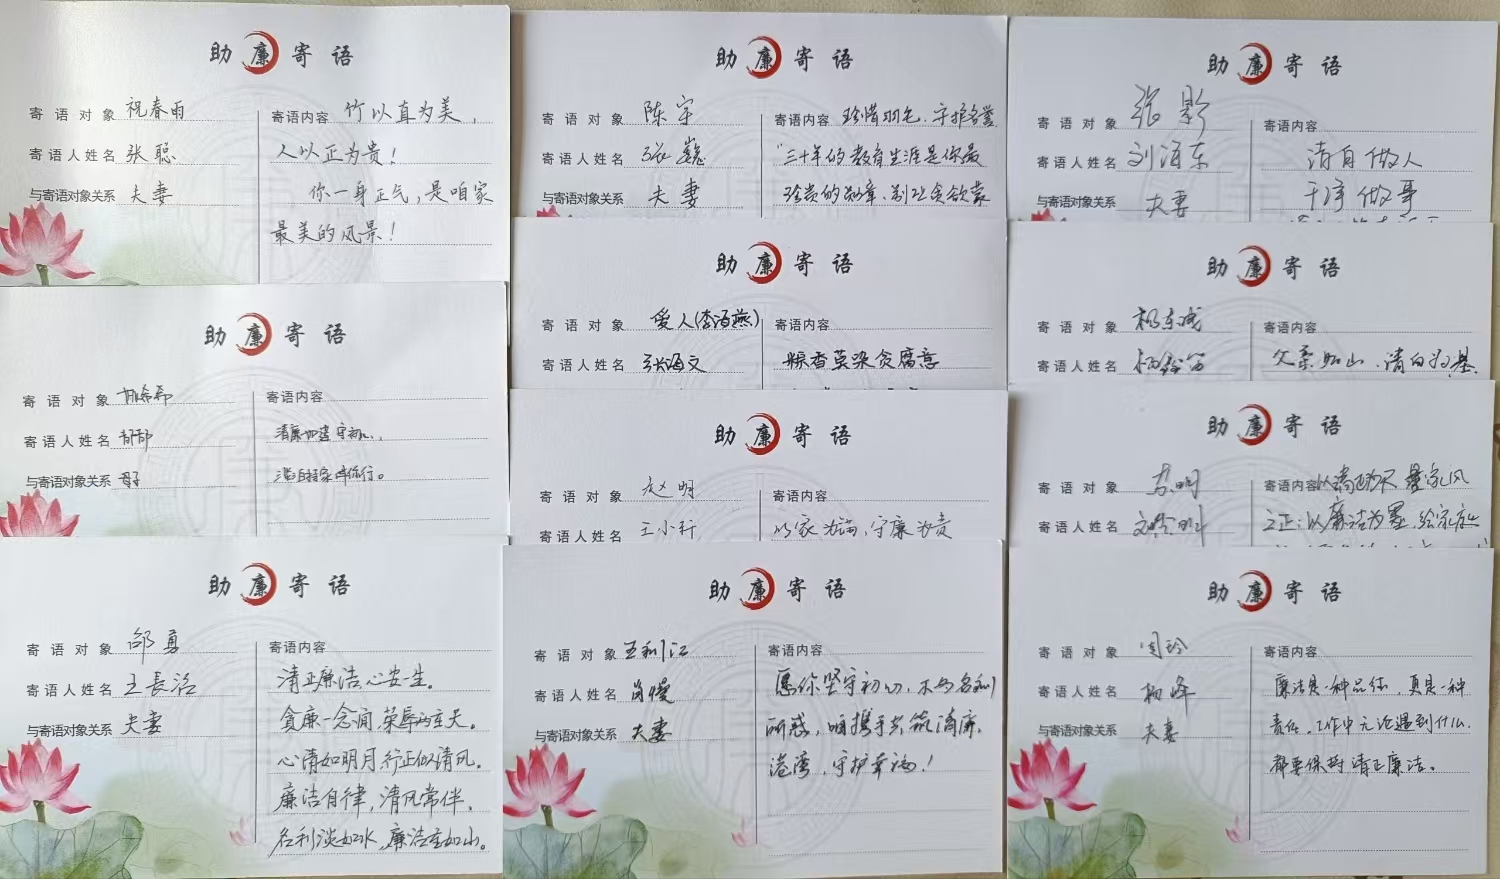 助廉寄语
寄语对象 祝春雨
寄语人姓名 张聪
与寄语对象关系 夫妻
寄语内容 竹以直为美，
人以正为贵！
你一身正气，是咱家
最美的风景！
助廉寄语
寄语对象
寄语人姓名 郁郁
与寄语对象关系 母子
寄语内容
清廉如莲守初心，
助廉寄语
寄语对象 邵勇
寄语人姓名 王长洛
与寄语对象关系 夫妻
寄语内容
清正廉洁心安一生。
贪廉一念间荣辱两重天。
心清如明月行正似清风。
廉洁自律，清风常伴。
名利淡如水，廉洁重如山。
助廉寄语
寄语对象 陈宇
寄语人姓名 张巍
与寄语对象关系 夫妻
寄语内容 珍惜羽毛，守护名誉
"三十年的教育生涯是你最
珍贵的勋章、别让贪欲蒙
助廉寄语
寄语对象 爱人(李海燕)
寄语人姓名 张海文
寄语内容
粽香莫染贪腐意
助廉寄语
寄语对象 赵明
寄语人姓名 王小行
寄语内容
以家为端，守廉为责
助廉寄语
寄语对象 王利江
寄语人姓名 肖慢
与寄语对象关系 夫妻
寄语内容
愿你坚守初心，不为名利
所惑，咱携手共筑清廉
港湾，守护幸福！
助廉寄语
寄语对象 张影
寄语人姓名 刘海东
与寄语对象关系 夫妻
寄语内容
清白做人
干净做事
助廉寄语
寄语对象 杨东成
寄语人姓名
寄语内容
父柔如山，清白为基
助廉寄语
寄语对象 苏明
寄语人姓名
寄语内容
之正；以廉洁为墨，绘家庭
助廉寄语
寄语对象 周玲
寄语人姓名 杨峰
与寄语对象关系 夫妻
寄语内容
廉洁是一种品德，更是一种
责任。工作中无论遇到什么，
都要保持清正廉洁。